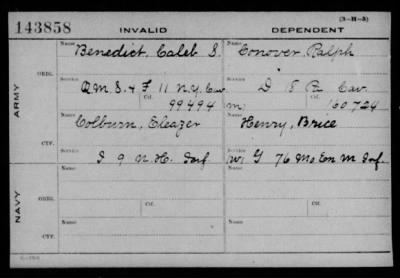 (3-H-3)
143858 INVALID DEPENDENT
Name Name
Benedict, Caleb S. Conover, Ralph
ORIG. Service Service
Q M S. & F 11 N.Y. Cav D 8 Pa Cav.
Ctf. Ctf.
ARMY 99494 m. 160724
Name Name
Colburn, Eleazer Henry, Brice
CTF. Service Service
I 9 N.H. Inf W. G 76 Mo En M Inf.
Name Name
ORIG.
Service Ctf. Service Ctf.
NAVY
Name Name
CTF.
Service Service